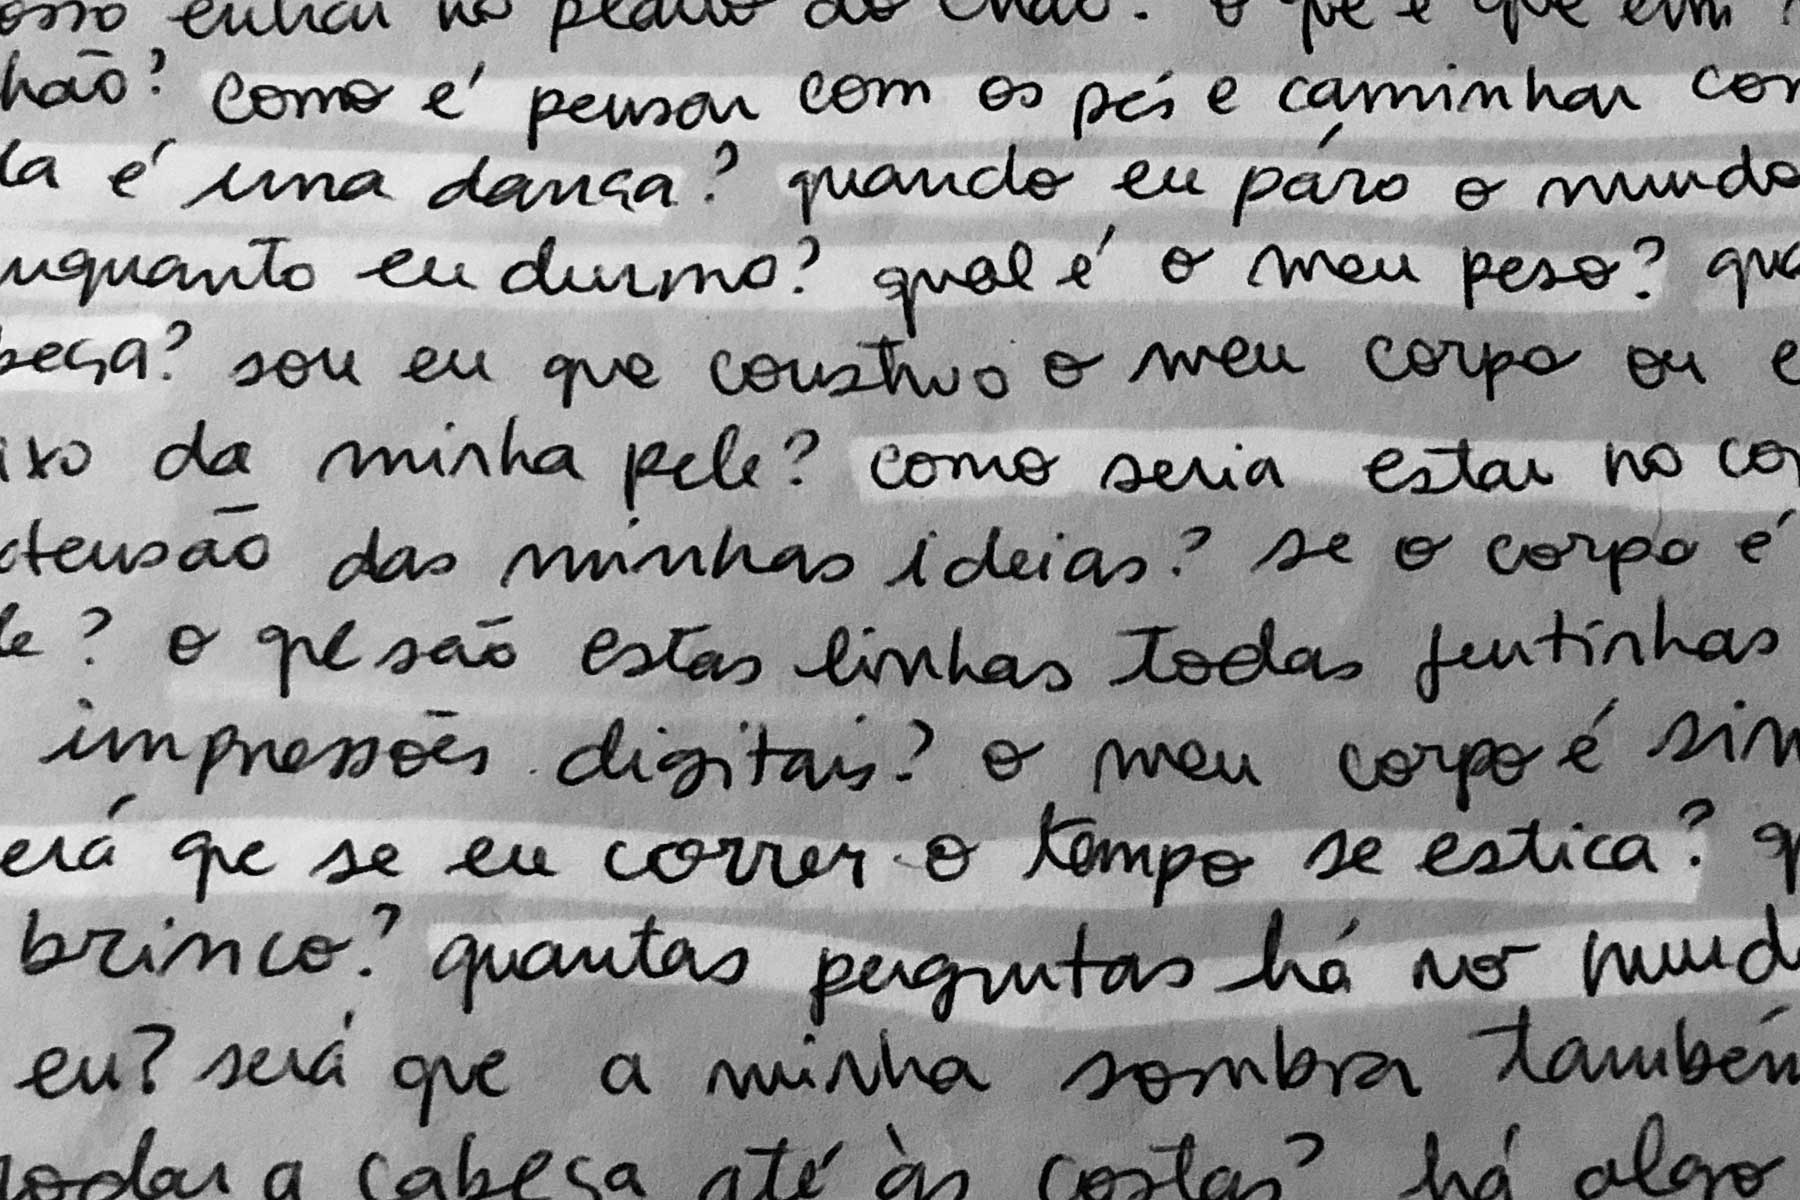 osso entrar no      do chão? o que é que em
hão? como é pensar com os pés e caminhar com
la é uma dança? quando eu páro o mundo
nquanto eu durmo? qual é o meu peso? qua
beça? sou eu que construo o meu corpo ou e
ixo da minha pele? como seria estar no cor
xtensão das minhas ideias? se o corpo é
le? o que são estas linhas todas juntinhas
impressões digitais? o meu corpo é sim
erá que se eu correr o tempo se estica? q
brinco? quantas perguntas há no mund
eu? será que a minha sombra também
rodar a cabeça até às costas? há algo